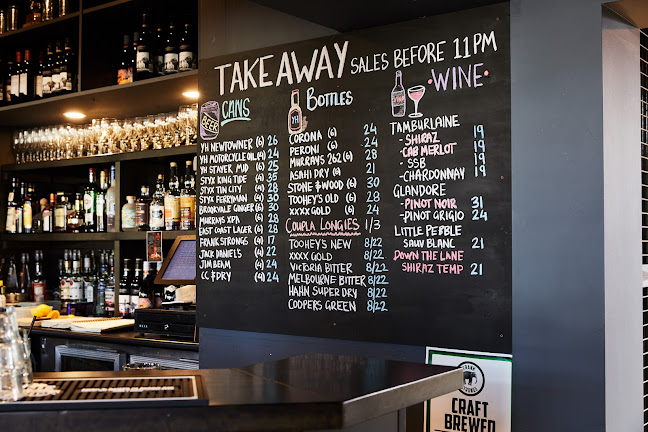 TAKEAWAY SALES BEFORE 11PM
CANS
BEER
YH NEWTOWNER (6) 26
YH MOTORCYCLE OIL (4) 24
YH STAYER MID (6) 25
STYX KING TIDE (4) 35
STYX TIN CITY (4) 28
STYX FERRYMAN (6) 30
BROOKVALE GINGER (6) 30
MURRAYS XPA (6) 28
EAST COAST LAGER (6) 28
FRANK STRONGS (4) 17
JACK DANIEL'S (4) 22
JIM BEAM (4) 24
CC & DRY (4) 24
BOTTLES
YH
CORONA (6) 24
PERONI (6) 24
MURRAYS 262 (6) 28
ASAHI DRY (6) 21
STONE & WOOD (6) 30
TOOHEY'S OLD (6) 28
XXXX GOLD (6) 24
COUPLA LONGIES 1/3
TOOHEY'S NEW 8/22
XXXX GOLD 8/22
VICTORIA BITTER 8/22
MELBOURNE BITTER 8/22
HAHN SUPER DRY 8/22
COOPERS GREEN 8/22
·WINE·
TAMBURLAINE
-SHIRAZ 19
-CAB MERLOT 19
-SSB 19
-CHARDONNAY 19
GLANDORE
-PINOT NOIR 31
-PINOT GRIGIO 24
LITTLE PEBBLE
SAUV BLANC 21
DOWN THE LANE
SHIRAZ TEMP 21
CRAFT
BREWED